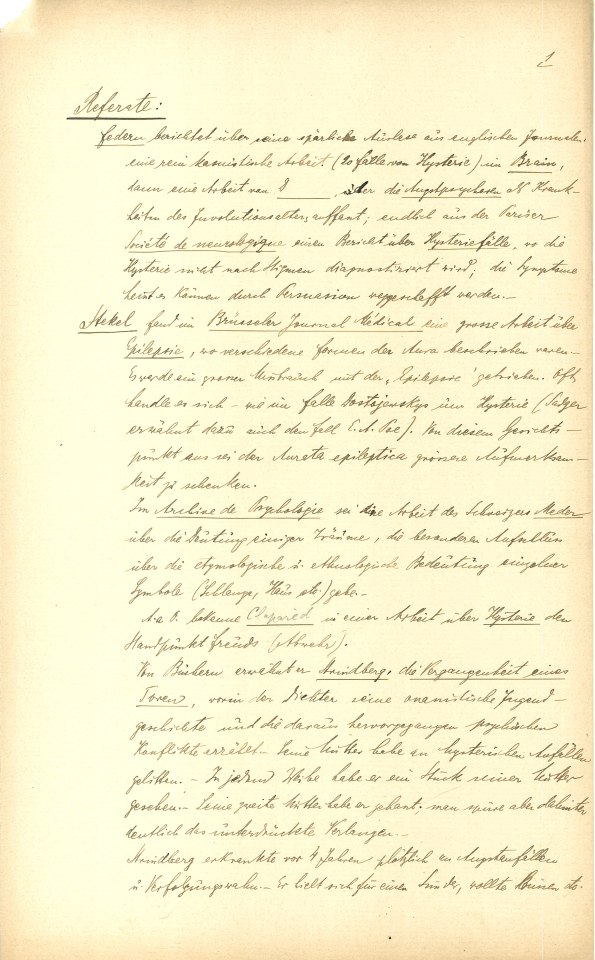 1
Referate:
Federn berichtet über eine spärliche Auslese aus englischen Journalen,
eine rein kasuistische Arbeit (20 Fälle von Hysterie) in Brain,
dann eine Arbeit von D über die Angstpsychosen als Krank-
heiten des Involutionsalters auffant; endlich aus der Pariser
Société de neurologique einen Bericht über Hysteriefälle, wo die
Hysterie nicht nach Stigmen diagnostiziert wird; die Symptome
heisst es können durch Persuasion weggeschafft werden.–
Stekel fand im Brüsseler Journal Médical eine grosse Arbeit über
Epilepsie, wo verschiedene Formen der Aura beschrieben waren.–
Es werde ein grosser Missbrauch mit der „Epilepsie" getrieben. Oft
handle es sich – wie im Falle Dostojewskys um Hysterie (Sadger
erwähnt dazu auch den Fall E. A. Poe). Von diesem Gesichts-
punkt aus sei der Aureta epileptica grössere Aufmerksam-
keit zu schenken.
Im Archive de Psychologie sei eine Arbeit des Schweizers Meder
über die Deutung einiger Träume, die besonderen Aufschluss
über die etymologische u. ethnologische Bedeutung einzelner
Symbole (Schlange, Haus etc.) gebe.–
A. a. O. bekenne Claparéd in einer Arbeit über Hysterie den
Standpunkt Freuds (Abwehr).
Von Büchern erwähnt er Strindberg, die Vergangenheit eines
Toren, worin der Dichter seine onanistische Jugend-
geschichte und die daraus hervorgegangen psychischen
Konflikte erzählt.– Seine Mutter habe an hysterischen Anfällen
gelitten.– In jedem Weibe habe er ein Stück seiner Mutter
gesehen.– Seine zweite Mutter habe er gehasst; man spüre aber dahinter
deutlich das unterdrückte Verlangen.–
Strindberg erkrankte vor 4 Jahren plötzlich an Angstanfällen
u. Verfolgungswahn.– Er hielt sich für einen Sünder, wollte büssen etc.